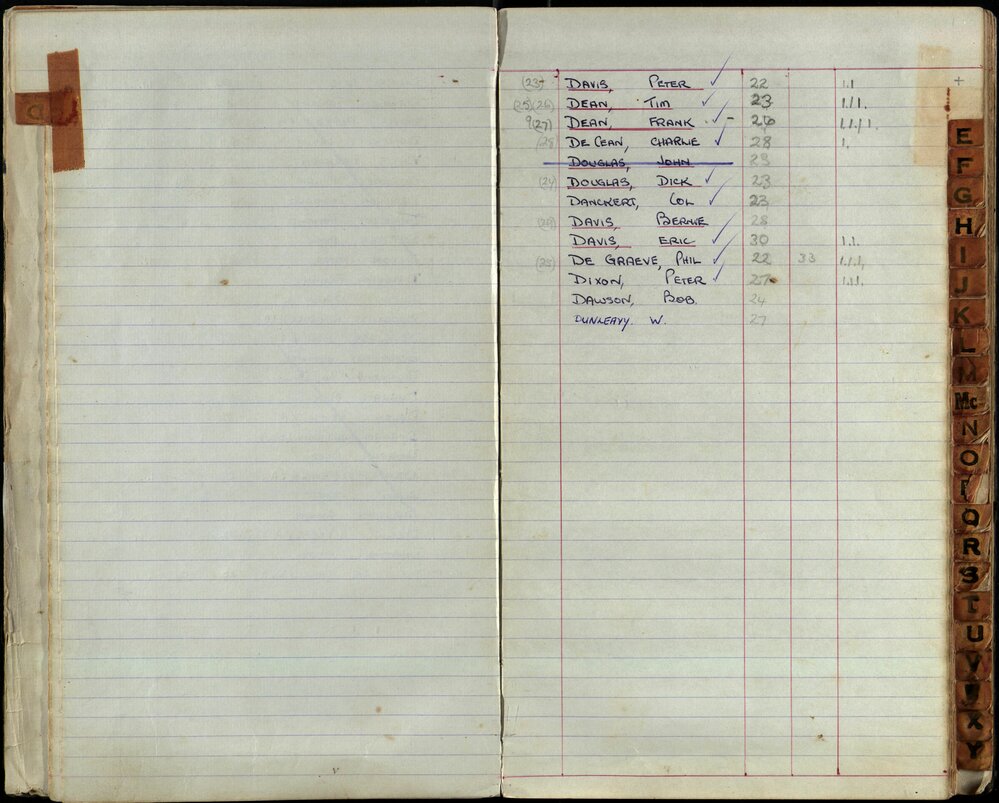 C
(23) DAVIS, PETER ✓ 22 1.1
(25)(26) DEAN, TIM ✓ 23 1.1.1.
9(27) DEAN, FRANK ✓ - 26 1.1.1.1.
(28) DE CEAN, CHARLIE ✓ 28 1.
DOUGLAS, JOHN 23
(24) DOUGLAS, DICK ✓ 23
DANCKERT, COL ✓ 23
(29) DAVIS, BERNIE 28
DAVIS, ERIC ✓ 30 1.1.
(25) DE GRAEVE, PHIL ✓ 22 33 1.1.1.
DIXON, PETER ✓ 27 1.1.1.
DAWSON, BOB. 24
DUNLEAVY. W. 27
E
F
G
H
I
J
K
L
M
Mc
N
O
P
Q
R
S
T
U
V
W
X
Y